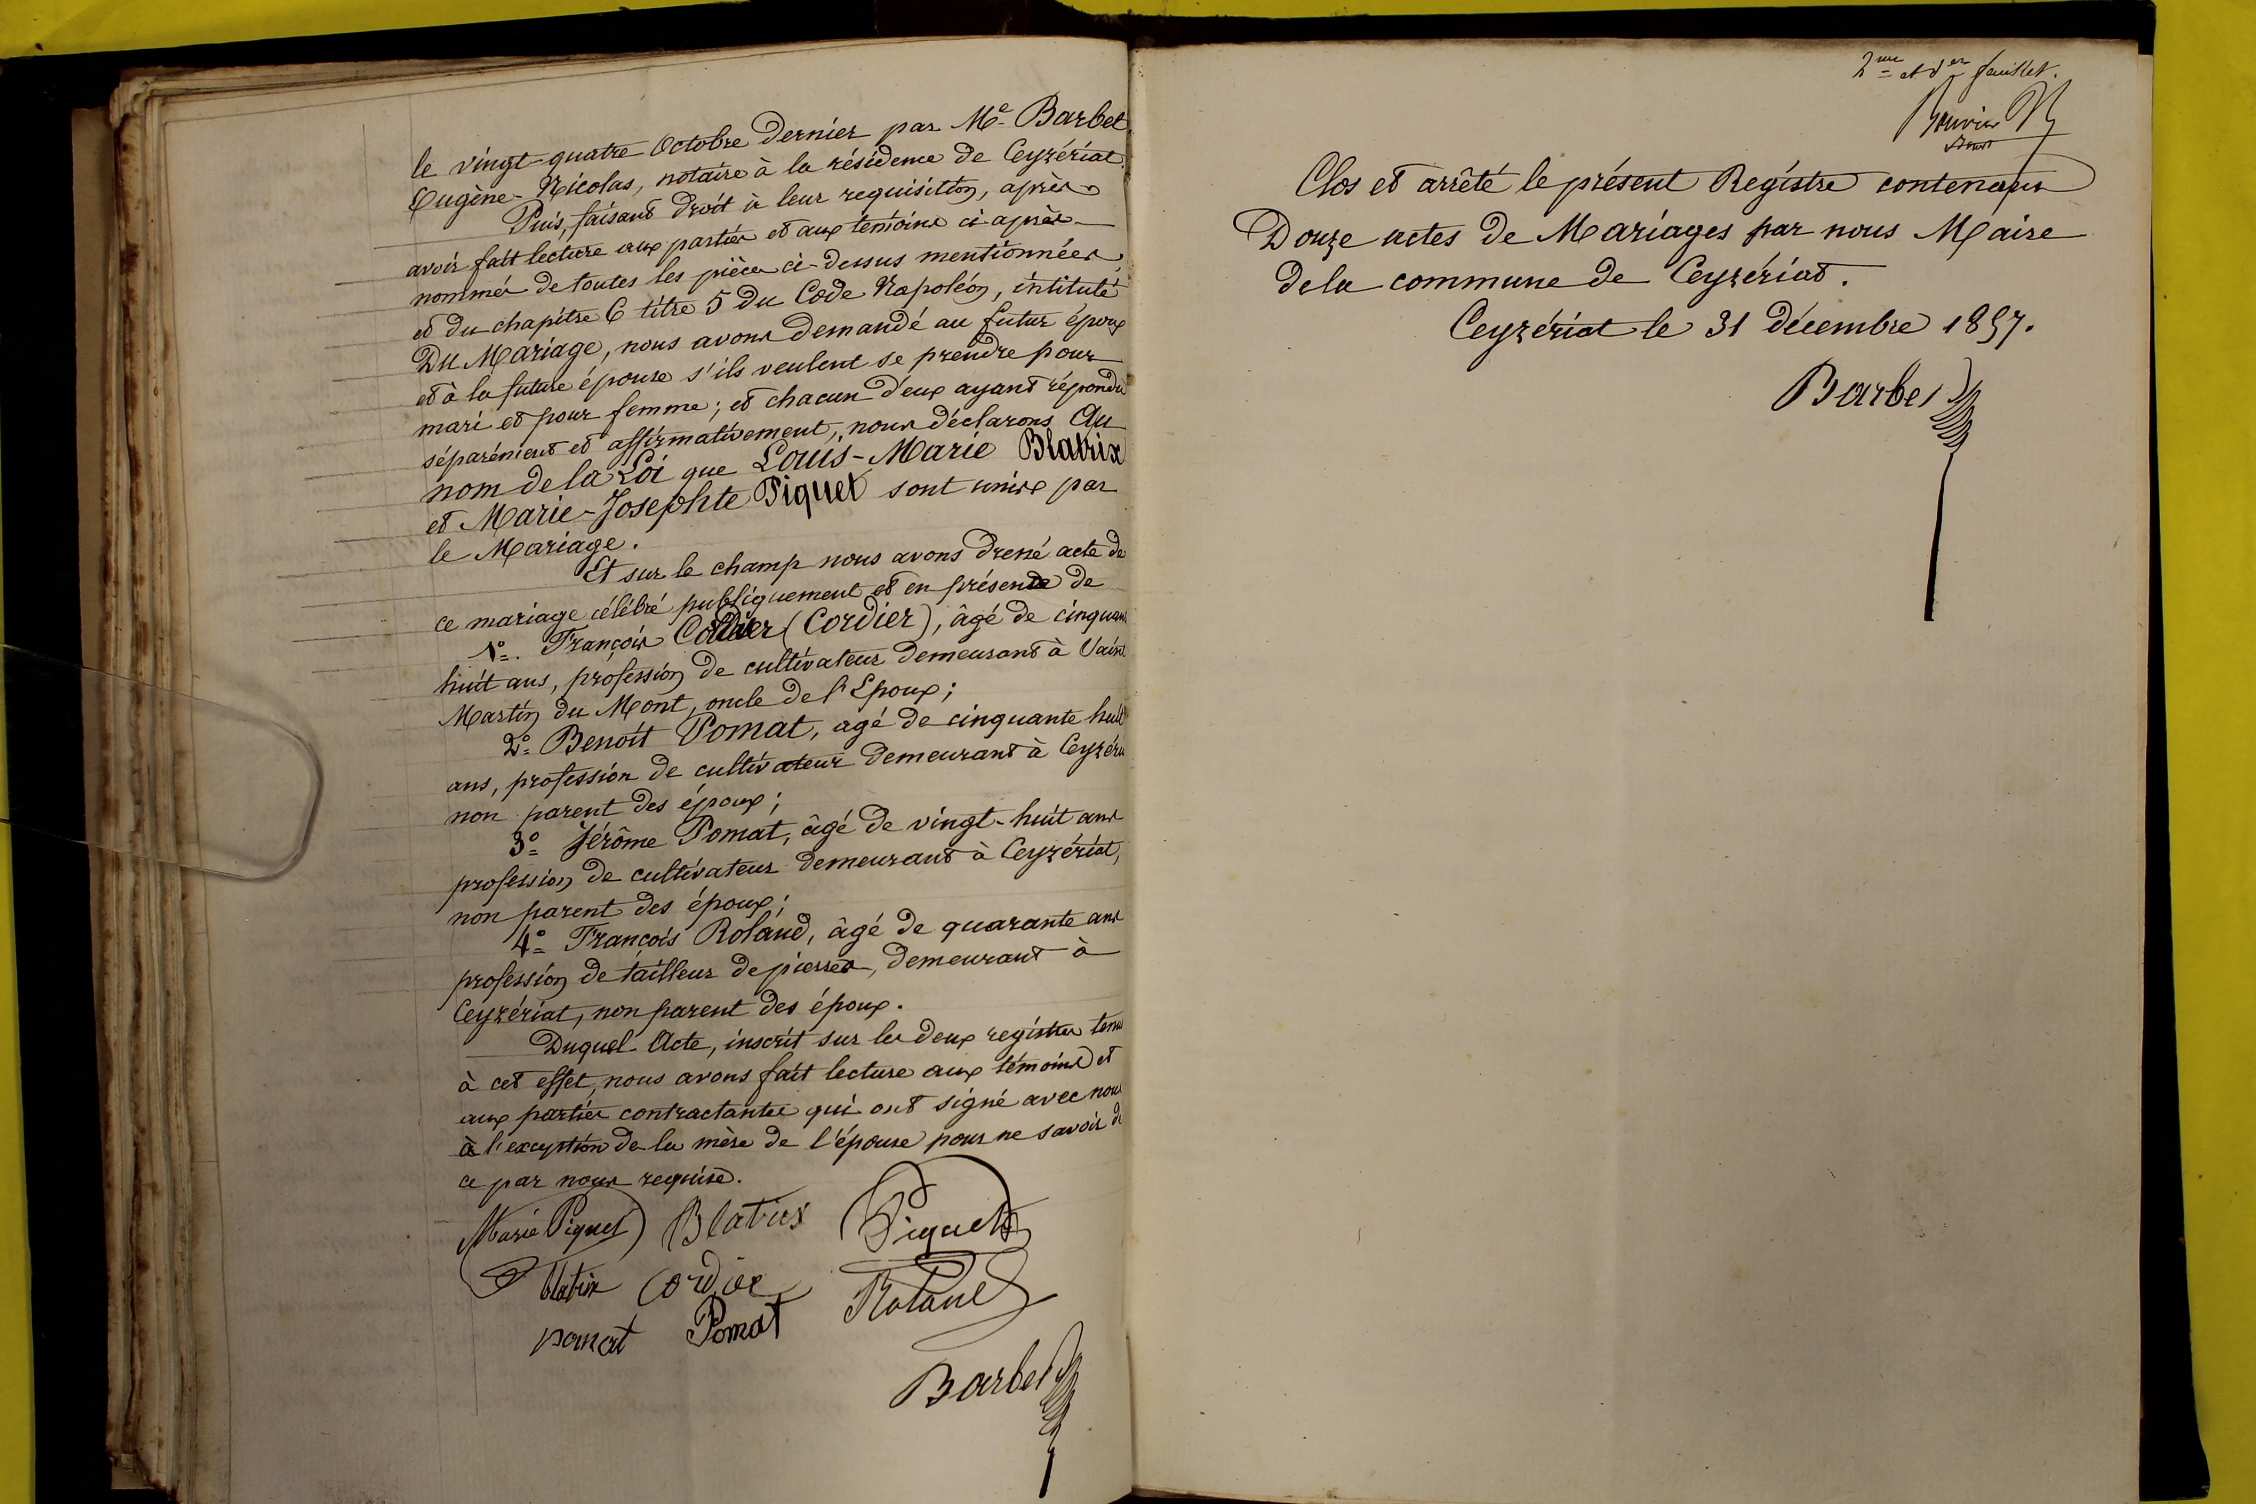 le vingt-quatre Octobre dernier par Me Barbet
Eugène-Nicolas, notaire à la résidence de Ceyzériat.
Puis, faisant droit à leur requisition, après
avoir fait lecture aux parties et aux témoins ci après
nommés de toutes les pièces ci-dessus mentionnées,
et du chapitre 6 titre 5 du Code Napoléon, intitulé
Du Mariage, nous avons demandé au futur époux
et à la future épouse s'ils veulent se prendre pour
mari et pour femme; et chacun d'eux ayant répondu
séparément et affirmativement, nous déclarons Au
nom de la Loi que Louis-Marie Blatrix
et Marie-Josephte Piquet sont unis par
le Mariage.
Et sur le champ nous avons dressé acte de
ce mariage célébré publiquement et en présence de
1o. François (Cordier), âgé de cinquante
huit ans, profession de cultivateur demeurant à Saint
Martin du Mont, oncle de l'Epoux;
2o Benoit Pomat, agé de cinquante huit
ans, profession de cultivateur demeurant à Ceyzéria
non parent des époux;
3o Jérôme Pomat, âgé de vingt-huit ans
profession de cultivateur demeurant à Ceyzériat,
non parent des époux;
4o François Roland, âgé de quarante ans
profession de tailleur de pierres, demeurant à
Ceyzériat, non parent des époux.
Duquel Acte, inscrit sur les deux registres tenus
à cet effet, nous avons fait lecture aux témoins et
aux parties contractantes qui ont signé avec nous
à l'exception de la mère de l'épouse pour ne savoir de
ce par nous requise.
Marie Piquet Blatrix Piquet
blatrix Cordier Roland
pomat Pomat
Barbet
2me et der feuillet.
Bouvier
Clos et arrêté le présent Registre contenant
Douze actes de Mariages par nous Maire
de la commune de Ceyzériat.
Ceyzériat le 31 décembre 1857.
Barbet